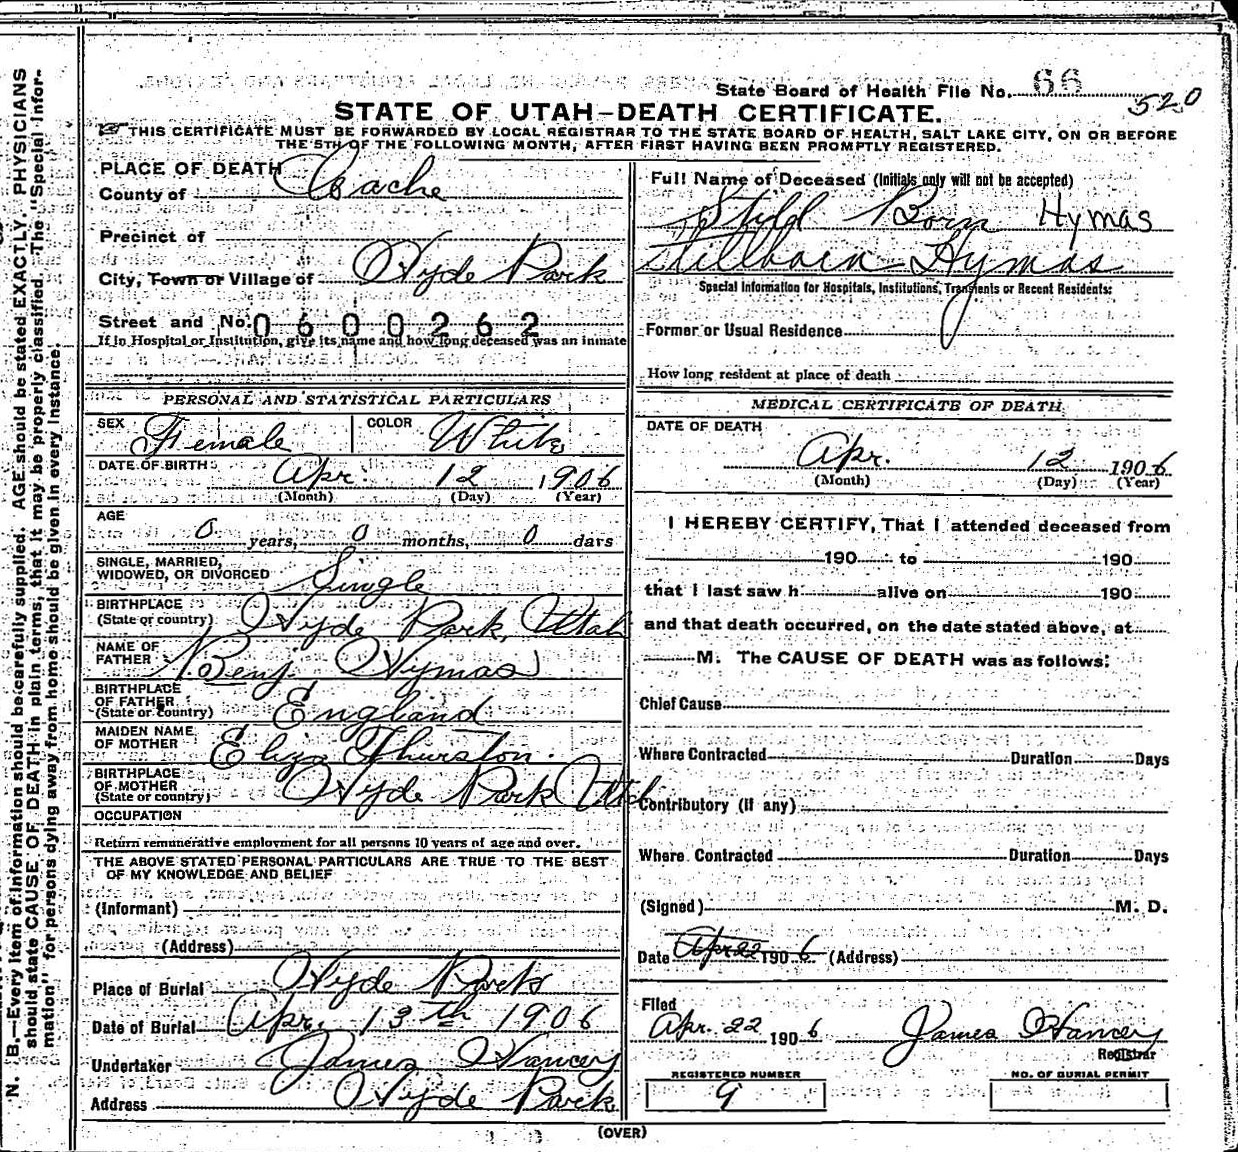 State Board of Health File No. 66
520
STATE OF UTAH–DEATH CERTIFICATE.
THIS CERTIFICATE MUST BE FORWARDED BY LOCAL REGISTRAR TO THE STATE BOARD OF HEALTH, SALT LAKE CITY, ON OR BEFORE
THE 5TH OF THE FOLLOWING MONTH, AFTER FIRST HAVING BEEN PROMPTLY REGISTERED.
N. B.—Every item of information should be carefully supplied. AGE should be stated EXACTLY. PHYSICIANS
should state CAUSE OF DEATH in plain terms, that it may be properly classified. The "Special Infor-
mation" for persons dying away from home should be given in every instance.
PLACE OF DEATH
County of Cache
Precinct of
City, Town or Village of Hyde Park
Street and No. 0600262
If in Hospital or Institution, give its name and how long deceased was an inmate
PERSONAL AND STATISTICAL PARTICULARS
SEX Female COLOR White
DATE OF BIRTH Apr. 12 1906
(Month) (Day) (Year)
AGE
0 years, 0 months, 0 days
SINGLE, MARRIED,
WIDOWED, OR DIVORCED Single
BIRTHPLACE
(State or country) Hyde Park, Utah
NAME OF
FATHER Benj Hymas
BIRTHPLACE
OF FATHER
(State or country) England
MAIDEN NAME
OF MOTHER Eliza Thurston
BIRTHPLACE
OF MOTHER
(State or country) Hyde Park Utah
OCCUPATION
Return remunerative employment for all persons 10 years of age and over.
THE ABOVE STATED PERSONAL PARTICULARS ARE TRUE TO THE BEST
OF MY KNOWLEDGE AND BELIEF
(Informant)
(Address)
Place of Burial Hyde Park
Date of Burial Apr. 13th 1906
Undertaker James Hancey
Address Hyde Park
Full Name of Deceased (Initials only will not be accepted)
Still Born Hymas
Stillborn Hymas
Special Information for Hospitals, Institutions, Transients or Recent Residents:
Former or Usual Residence
How long resident at place of death
MEDICAL CERTIFICATE OF DEATH
DATE OF DEATH
Apr. 12 1906
(Month) (Day) (Year)
I HEREBY CERTIFY, That I attended deceased from
190 to 190
that I last saw h alive on 190
and that death occurred, on the date stated above, at
M. The CAUSE OF DEATH was as follows:
Chief Cause
Where Contracted Duration Days
Contributory (if any)
Where Contracted Duration Days
(Signed) M. D.
Date Apr 22 1906 (Address)
Filed
Apr. 22 1906 James Hancey
Registrar
REGISTERED NUMBER
9
NO. OF BURIAL PERMIT
(OVER)